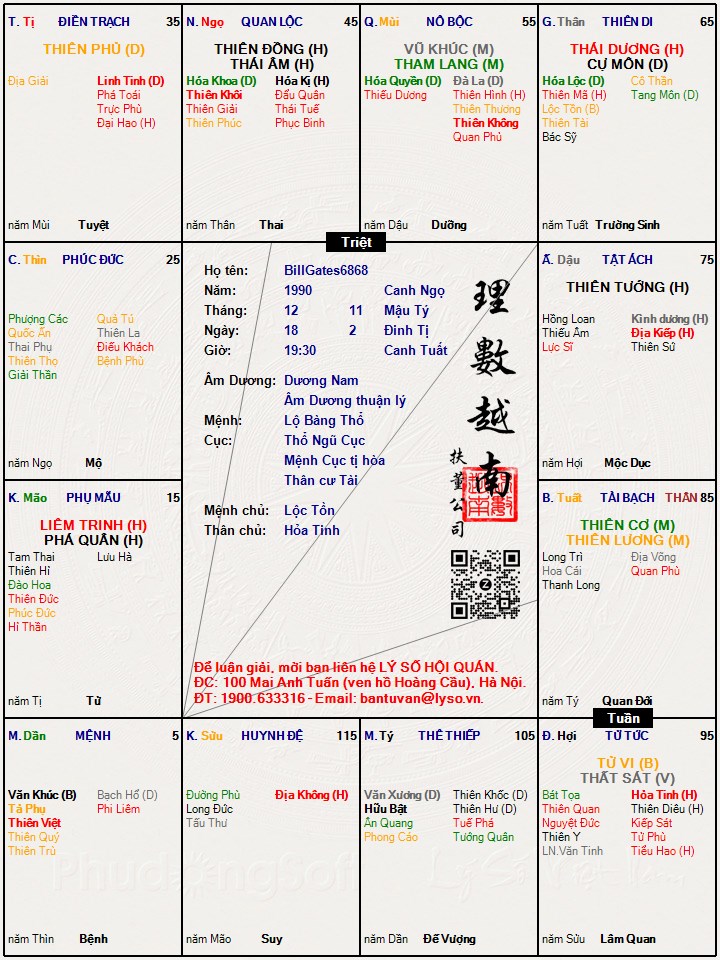 T. Tị ĐIỀN TRẠCH 35
THIÊN PHỦ (D)
Địa Giải Linh Tinh (D)
Phá Toái
Trực Phù
Đại Hao (H)
năm Mùi Tuyệt
N. Ngọ QUAN LỘC 45
THIÊN ĐỒNG (H)
THÁI ÂM (H)
Hóa Khoa (D) Hóa Kị (H)
Thiên Khôi Đẩu Quân
Thiên Giải Thái Tuế
Thiên Phúc Phục Binh
năm Thân Thai
Q. Mùi NÔ BỘC 55
VŨ KHÚC (M)
THAM LANG (M)
Hóa Quyền (D) Đà La (D)
Thiếu Dương Thiên Hình (H)
Thiên Thương
Thiên Không
Quan Phủ
năm Dậu Dưỡng
G. Thân THIÊN DI 65
THÁI DƯƠNG (H)
CỰ MÔN (D)
Hóa Lộc (D) Cô Thần
Thiên Mã (H) Tang Môn (D)
Lộc Tồn (B)
Thiên Tài
Bác Sỹ
năm Tuất Trường Sinh
Triệt
C. Thìn PHÚC ĐỨC 25
Phượng Các Quả Tú
Quốc Ấn Thiên La
Thai Phụ Điếu Khách
Thiên Thọ Bệnh Phù
Giải Thần
năm Ngọ Mộ
Họ tên: BillGates6868
Năm: 1990 Canh Ngọ
Tháng: 12 11 Mậu Tý
Ngày: 18 2 Đinh Tị
Giờ: 19:30 Canh Tuất
Âm Dương: Dương Nam
Âm Dương thuận lý
Mệnh: Lộ Bàng Thổ
Cục: Thổ Ngũ Cục
Mệnh Cục tị hòa
Thân cư Tài
Mệnh chủ: Lộc Tồn
Thân chủ: Hỏa Tinh
理數越南
扶董公司
Để luận giải, mời bạn liên hệ LÝ SỐ HỘI QUÁN.
ĐC: 100 Mai Anh Tuấn (ven hồ Hoàng Cầu), Hà Nội.
ĐT: 1900.633316 - Email: bantuvan@lyso.vn.
Ấ. Dậu TẬT ÁCH 75
THIÊN TƯỚNG (H)
Hồng Loan Kình dương (H)
Thiếu Âm Địa Kiếp (H)
Lực Sĩ Thiên Sứ
năm Hợi Mộc Dục
K. Mão PHỤ MẪU 15
LIÊM TRINH (H)
PHÁ QUÂN (H)
Tam Thai Lưu Hà
Thiên Hỉ
Đào Hoa
Thiên Đức
Phúc Đức
Hỉ Thần
năm Tị Tử
B. Tuất TÀI BẠCH THÂN 85
THIÊN CƠ (M)
THIÊN LƯƠNG (M)
Long Trì Địa Võng
Hoa Cái Quan Phù
Thanh Long
năm Tý Quan Đới
Tuần
M. Dần MỆNH 5
Văn Khúc (B) Bạch Hổ (D)
Tả Phụ Phi Liêm
Thiên Việt
Thiên Quý
Thiên Trù
năm Thìn Bệnh
K. Sửu HUYNH ĐỆ 115
Đường Phù Địa Không (H)
Long Đức
Tấu Thư
năm Mão Suy
M. Tý THÊ THIẾP 105
Văn Xương (D) Thiên Khốc (D)
Hữu Bật Thiên Hư (D)
Ân Quang Tuế Phá
Phong Cáo Tướng Quân
năm Dần Đế Vượng
Đ. Hợi TỬ TỨC 95
TỬ VI (B)
THẤT SÁT (V)
Bát Tọa Hỏa Tinh (H)
Thiên Quan Thiên Diêu (H)
Nguyệt Đức Kiếp Sát
Thiên Y Tử Phù
LN.Văn Tinh Tiểu Hao (H)
năm Sửu Lâm Quan